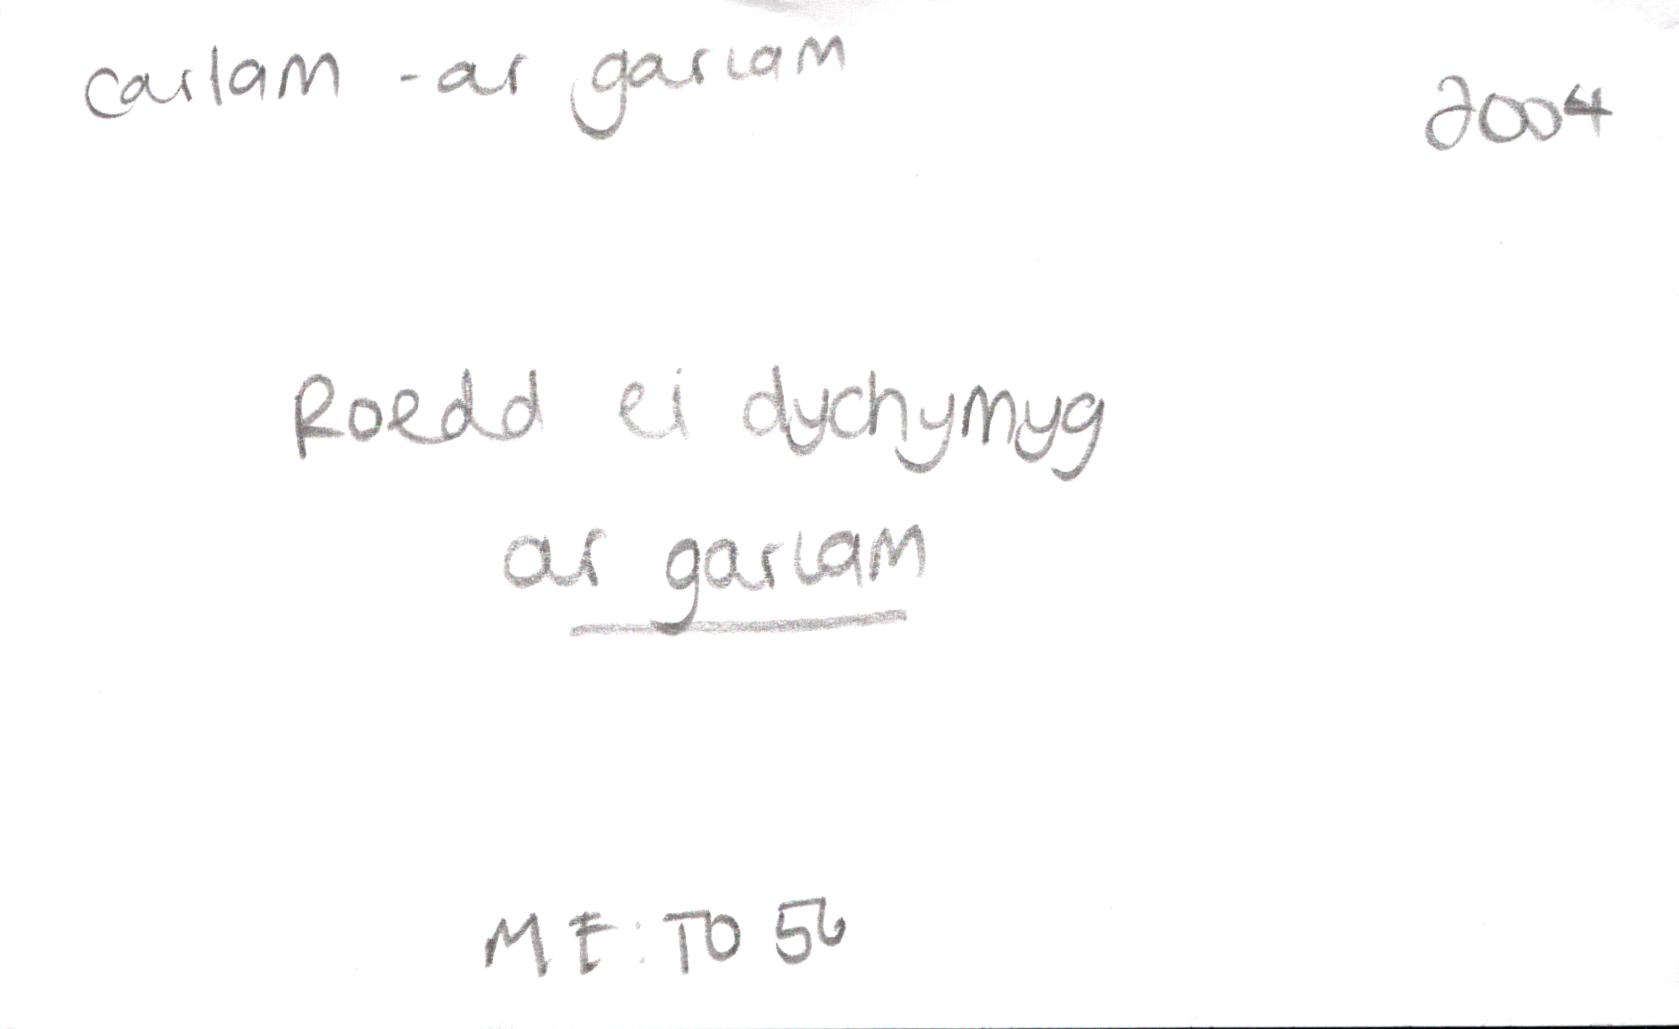 carlam - ar garlam 2004
Roedd ei dychymyg
ar garlam
ME: TO 56